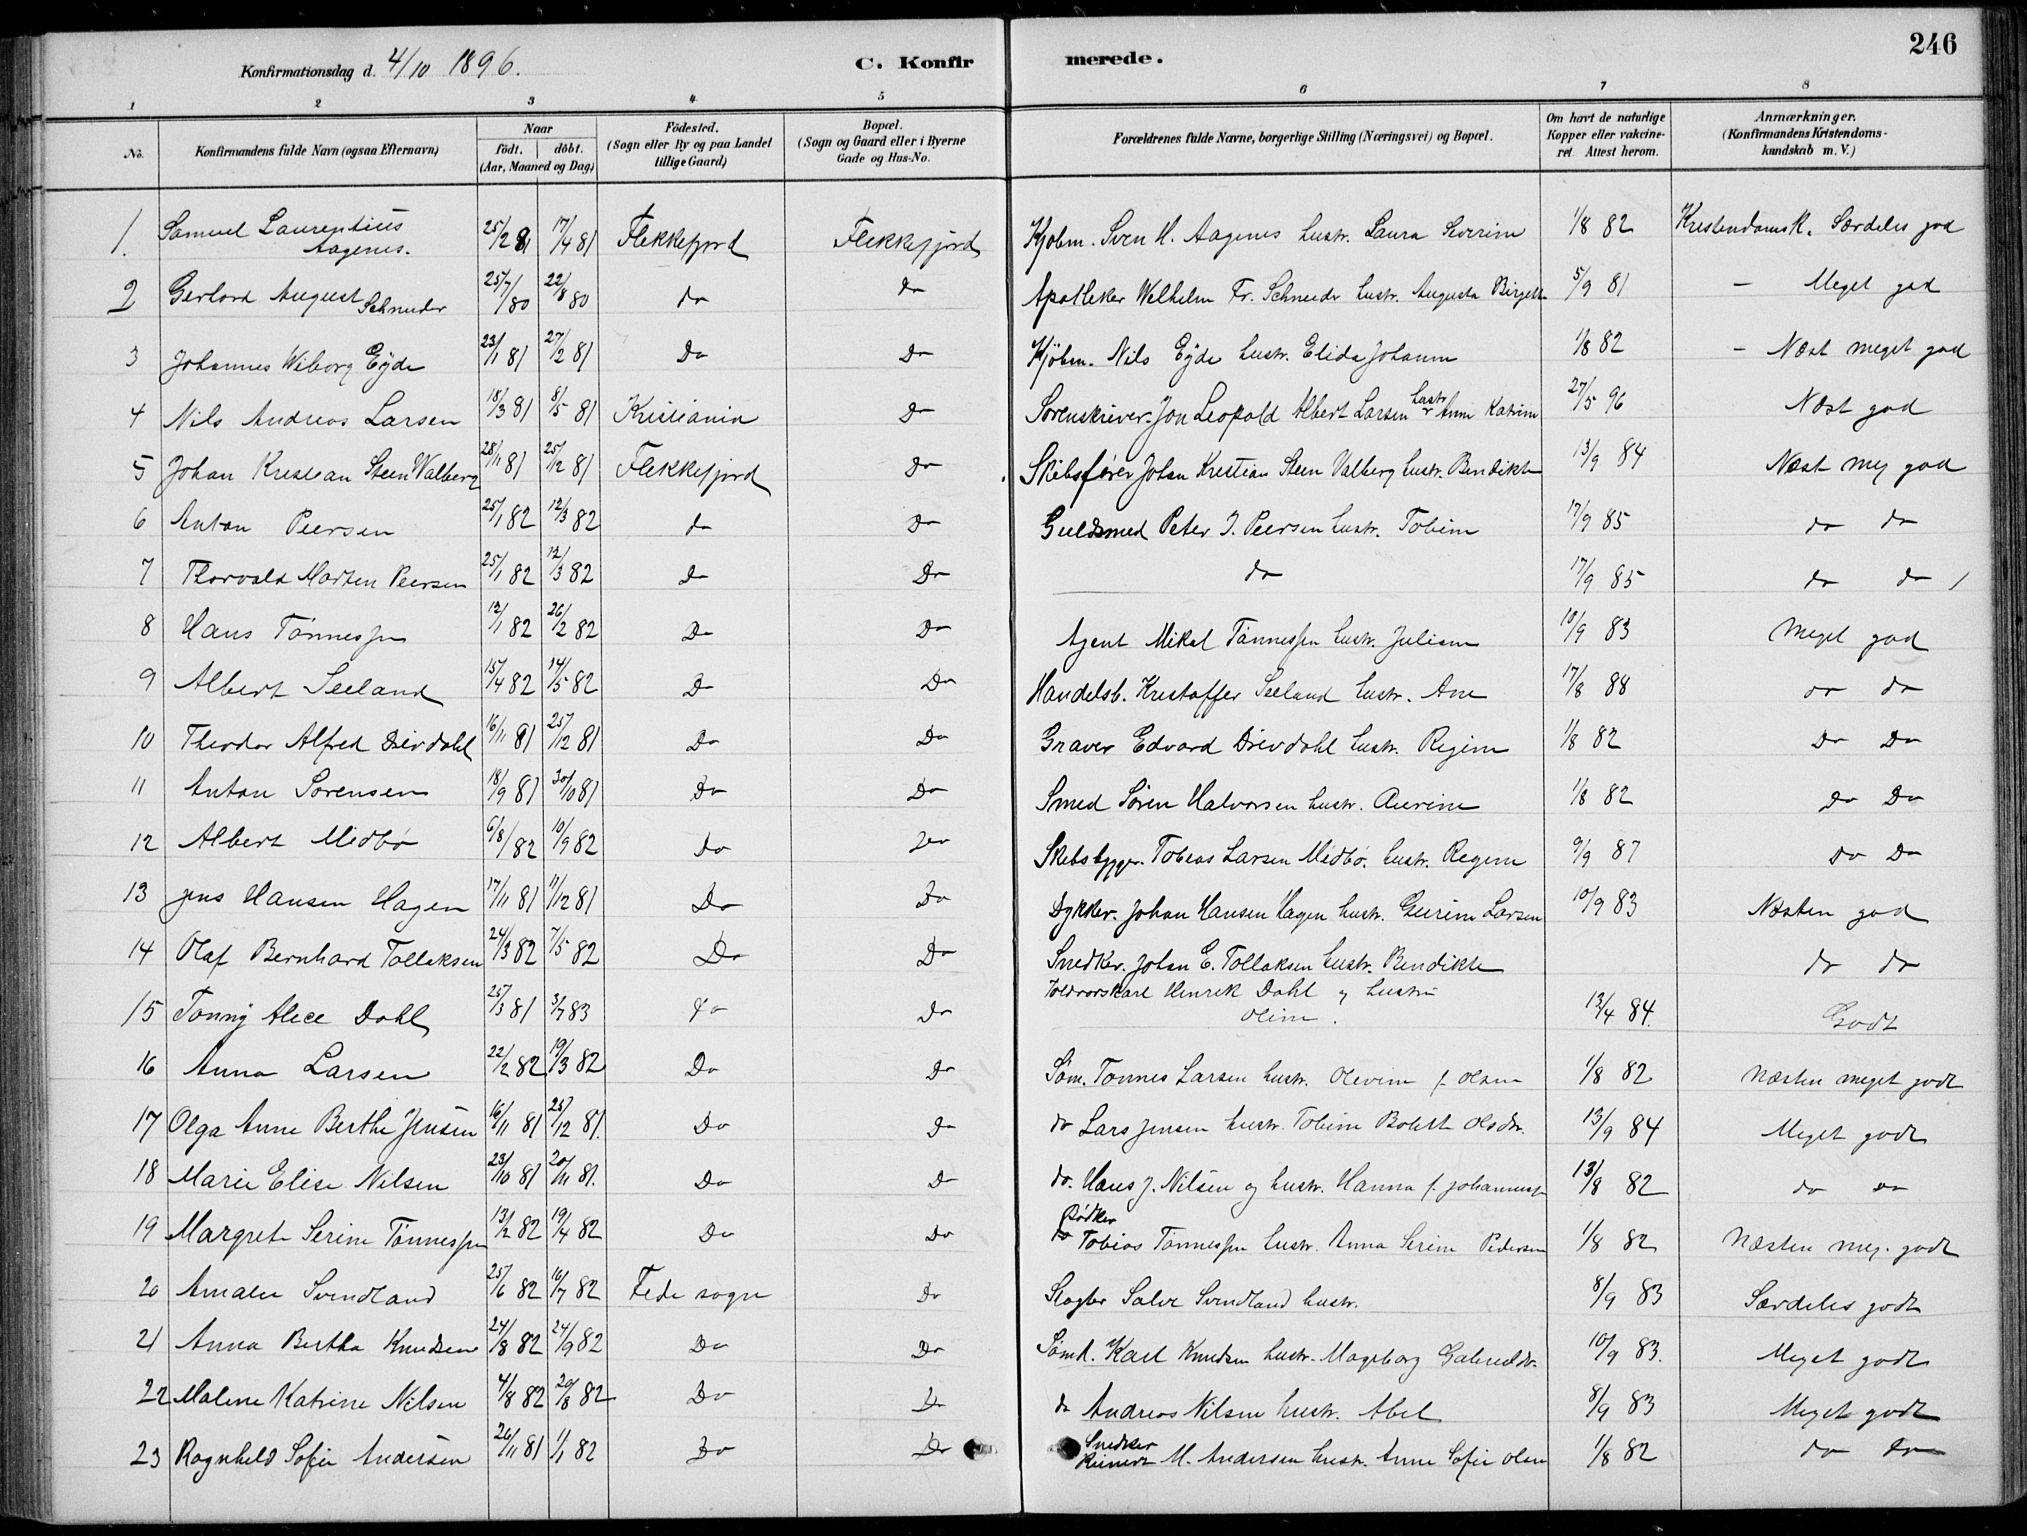 246
Konfirmationsdag d. 4/10 1896. C. Konfirmerede.
1 2 3 4 5 6 7 8
No. Konfirmandens fulde Navn (ogsaa Efternavn) Naar født. døbt. (Aar, Maaned og Dag) Födested. (Sogn eller By og paa Landet tillige Gaard) Bopæl. (Sogn og Gaard eller i Byerne Gade og Hus-No. Forældrenes fulde Navne, borgerlige Stilling (Næringsvei) og Bopæl. Om havt de naturlige Kopper eller vakcineret Attest herom. Anmærkninger. (Konfirmandens Kristendomskundskab m. V.)
1. Samuel Laurentius Aagenes. 25/2 81 17/4 81 Flekkefjord Flekkefjord Kjøbm. Sven H. Aagenes hustr. Laura Severine 1/8 82 Kristendomsk. Særdeles god
2 Gerhard August Schneider 25/7/80 22/8 80 do do Apotheker Welhelm Fr. Schneider hustr. Augusta Birgitte 5/9 81 – Meget god
3 Johannes Wiborg Eyde 23/1 81 27/2 81 Do Do Kjöbm. Nils Eyde hustr. Elida Johanne 1/8 82 – Næst meget god
4 Nils Andreas Larsen 18/3 81 8/5 81 Kristiania Do Sorenskriver Jon Leopold Albert Larsen hustr Anne Katrine 27/5 96 Næst god
5 Johan Kristian Steen Walberg 28/11 81 25/12 81 Flekkefjord Do Skibsfører Johan Kristian Steen Valberg hustr. Bendikte 13/9 84 Næst meg god
6 Anton Peersen 25/1 82 12/3 82 do Do Guldsmed Peter J. Peersen hustr. Tobine 17/9 85 do do
7 Thorvald Morten Peersen 25/1 82 12/3 82 Do Do do 17/9 85 do do /
8 Hans Tönnessen 12/1 82 26/2 82 Do Do Agent Mikal Tønnessen hustr. Juliane 10/9 83 Meget god
9 Albert Seeland 15/4 82 14/5 82 Do Do Handelsb. Kristoffer Seeland hustr. Ane 17/8 88 do do
10 Theodor Alfred Drivdahl 16/11 81 25/12 81 Do Do Graver Edvard Drivdahl hustr. Regine 1/8 82 Do Do
11 Anton Sørensen 18/9 81 30/10 81 Do Do Smed Søren Halvorsen hustr. 1/8 82 Do Do
12 Albert Midbø 6/8/82 10/9 82 Do Do Skibsbygger. Tobias Larsen Midbø. hustr. Regine 9/9 87 Do Do
13 Jens Hansen Hagen 17/11 81 11/12 81 Do Do Dykker. Johan Hansen Hagen hustr. Gurine Larsen 10/9 83 Næsten god
14 Olaf Bernhard Tollaksen 24/3 82 7/5 82 Do Do Snedker. Johan E. Tollaksen hustr. Bendikte do do
15 Tonny Alice Dahl 25/3 81 3/7 83 do Do Henrik Dahl og hustru Oline. 13/4 84. Godt
16 Anna Larsen 22/2 82 19/3 82 Do Do Søm. Tønnes Larsen hustr. Olevine f. Olsen 1/8 82 Næsten meget godt
17 Olga Anne Berthe Jensen 16/11 81 25/12 81. Do Do do Lars Jensen hustr. Tobine Olsdtr. 13/9 84 Meget godt
18 Marie Elise Nilsen 23/10 81 20/11 81. Do Do do. Hans J. Nilsen og hustr. Hanna f. Johannesen 13/8 82 do do
19 Margrete Serine Tönnessen 13/2 82 19/4 82 Do Do Bödker do Tobias Tønnessen hustr. Anna Serine Pedersen 1/8 82 Næsten meg. godt
20 Amalie Svindland 25/6 82 16/7 82 Fede sogn Do Slagter Salve Svindland hustr. 8/9 83 Særdeles godt
21 Anna Bertha Knudsen 24/8 82 24/9 82 Do Do Sømd. Karl Knudsen hustr. Mageborg Gabrieldtr. 10/9 83. Meget godt
22 Malene Katrine Nilsen 4/8 82 20/8 82 Do Do do Andreas Nilsen hustr. Abel 8/9 83 Meget godt
23 Ragnhild Sofie Andersen 26/11 81 1/1 82 Do Do Snedker Reinert M. Andersen hustr. Anne Sofie Olsen 1/8 82 do do